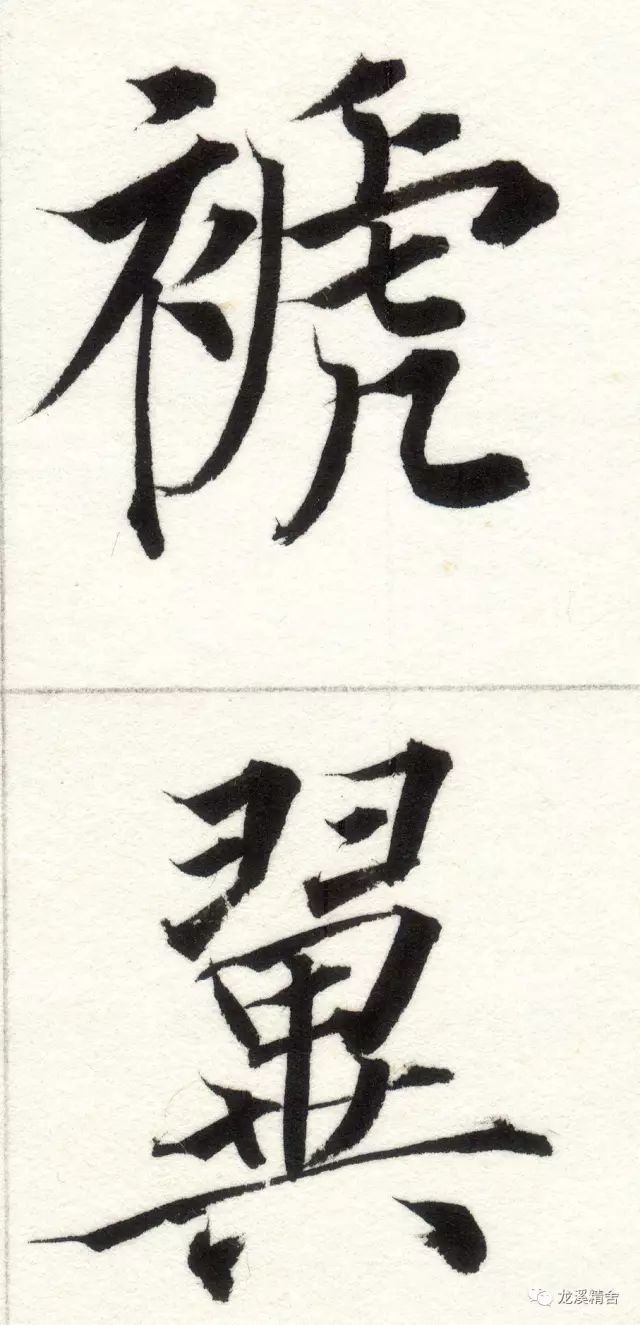 褫
翼
龙溪精舍